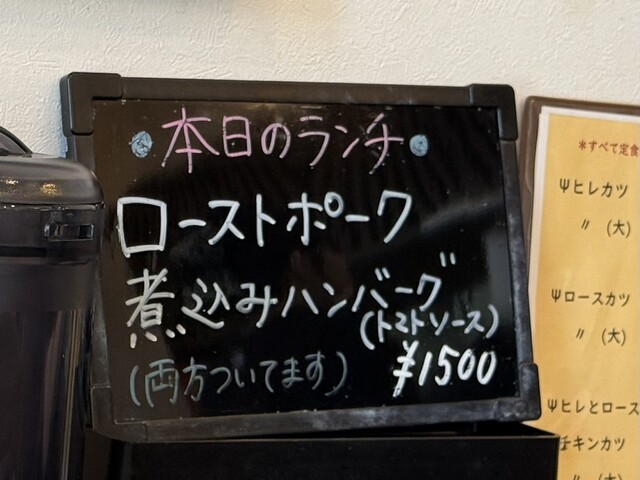 本日のランチ
ローストポーク
煮込みハンバーグ
(トマトソース)
(両方ついてます)
¥1500
*すべて定食
ヒレカツ
〃 (大)
ロースカツ
〃 (大)
ヒレとロース
チキンカツ
〃 (大)